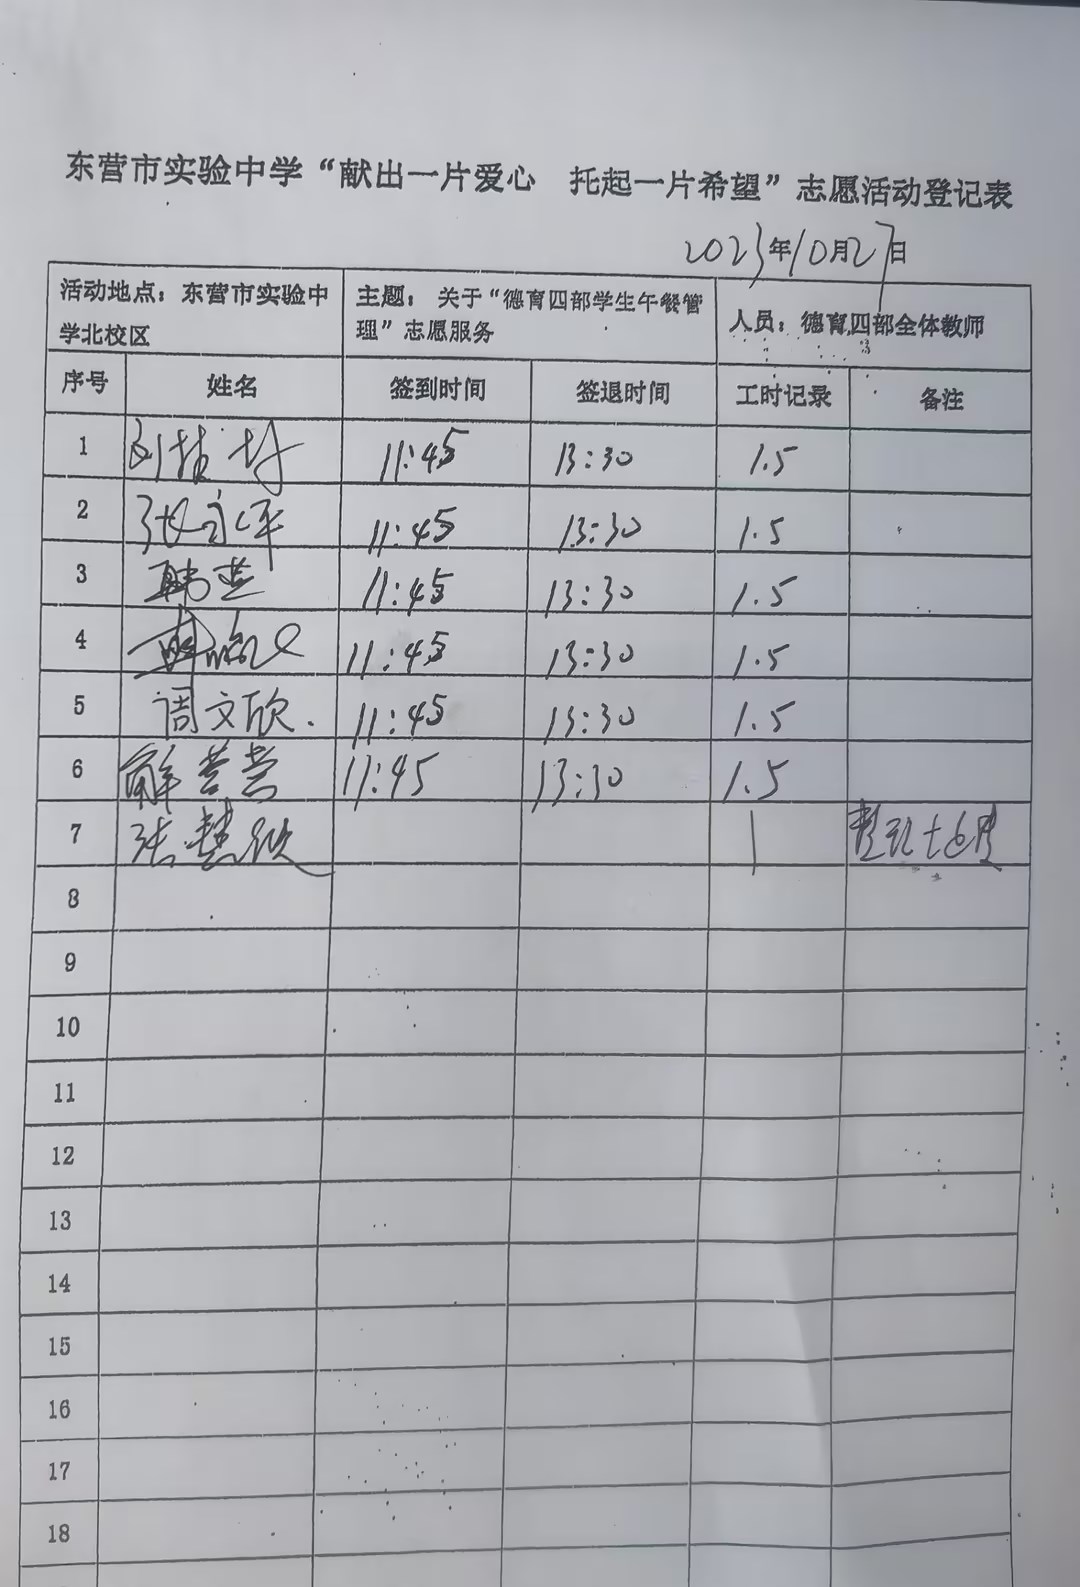 东营市实验中学“献出一片爱心 托起一片希望”志愿活动登记表
2023年10月27日
活动地点：东营市实验中学北校区 主题：关于“德育四部学生午餐管理”志愿服务 人员：德育四部全体教师
序号 姓名 签到时间 签退时间 工时记录 备注
1 11:45 13:30 1.5
2 张永平 11:45 13:30 1.5
3 韩燕 11:45 13:30 1.5
4 11:45 13:30 1.5
5 周文欣. 11:45 13:30 1.5
6 解营营 11:45 13:30 1.5
7 张慧欣 1
8
9
10
11
12
13
14
15
16
17
18